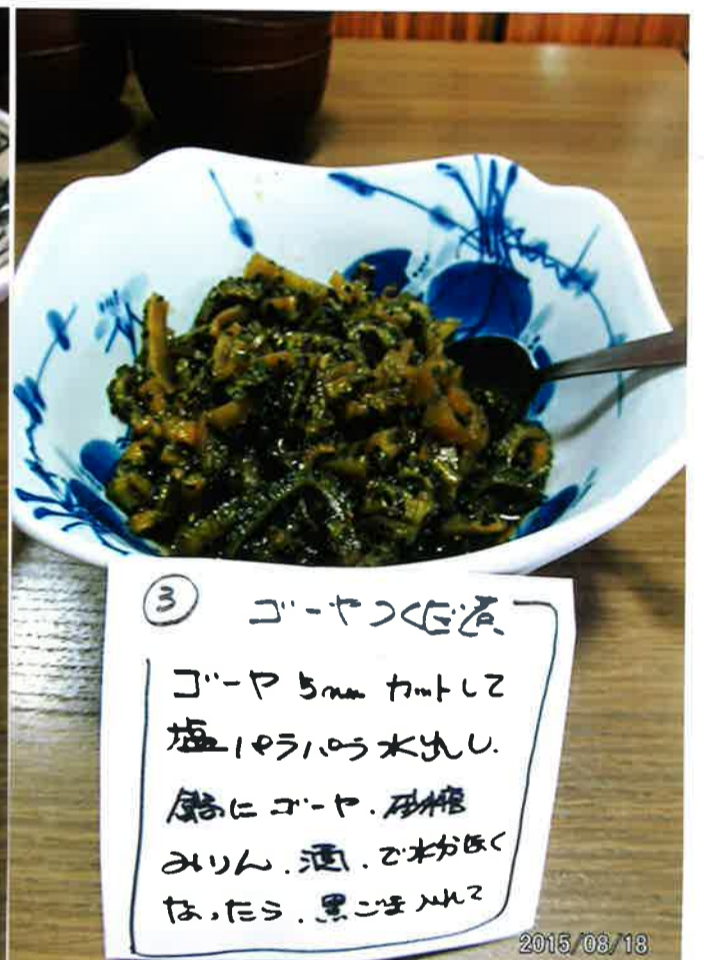 ③ ゴーヤつくだ煮
ゴーヤ 5mm カットして
塩パラパラ水出し.
鍋にゴーヤ.砂糖
みりん.酒.で水分無く
なったら.黒ごま入れて
2015/08/18